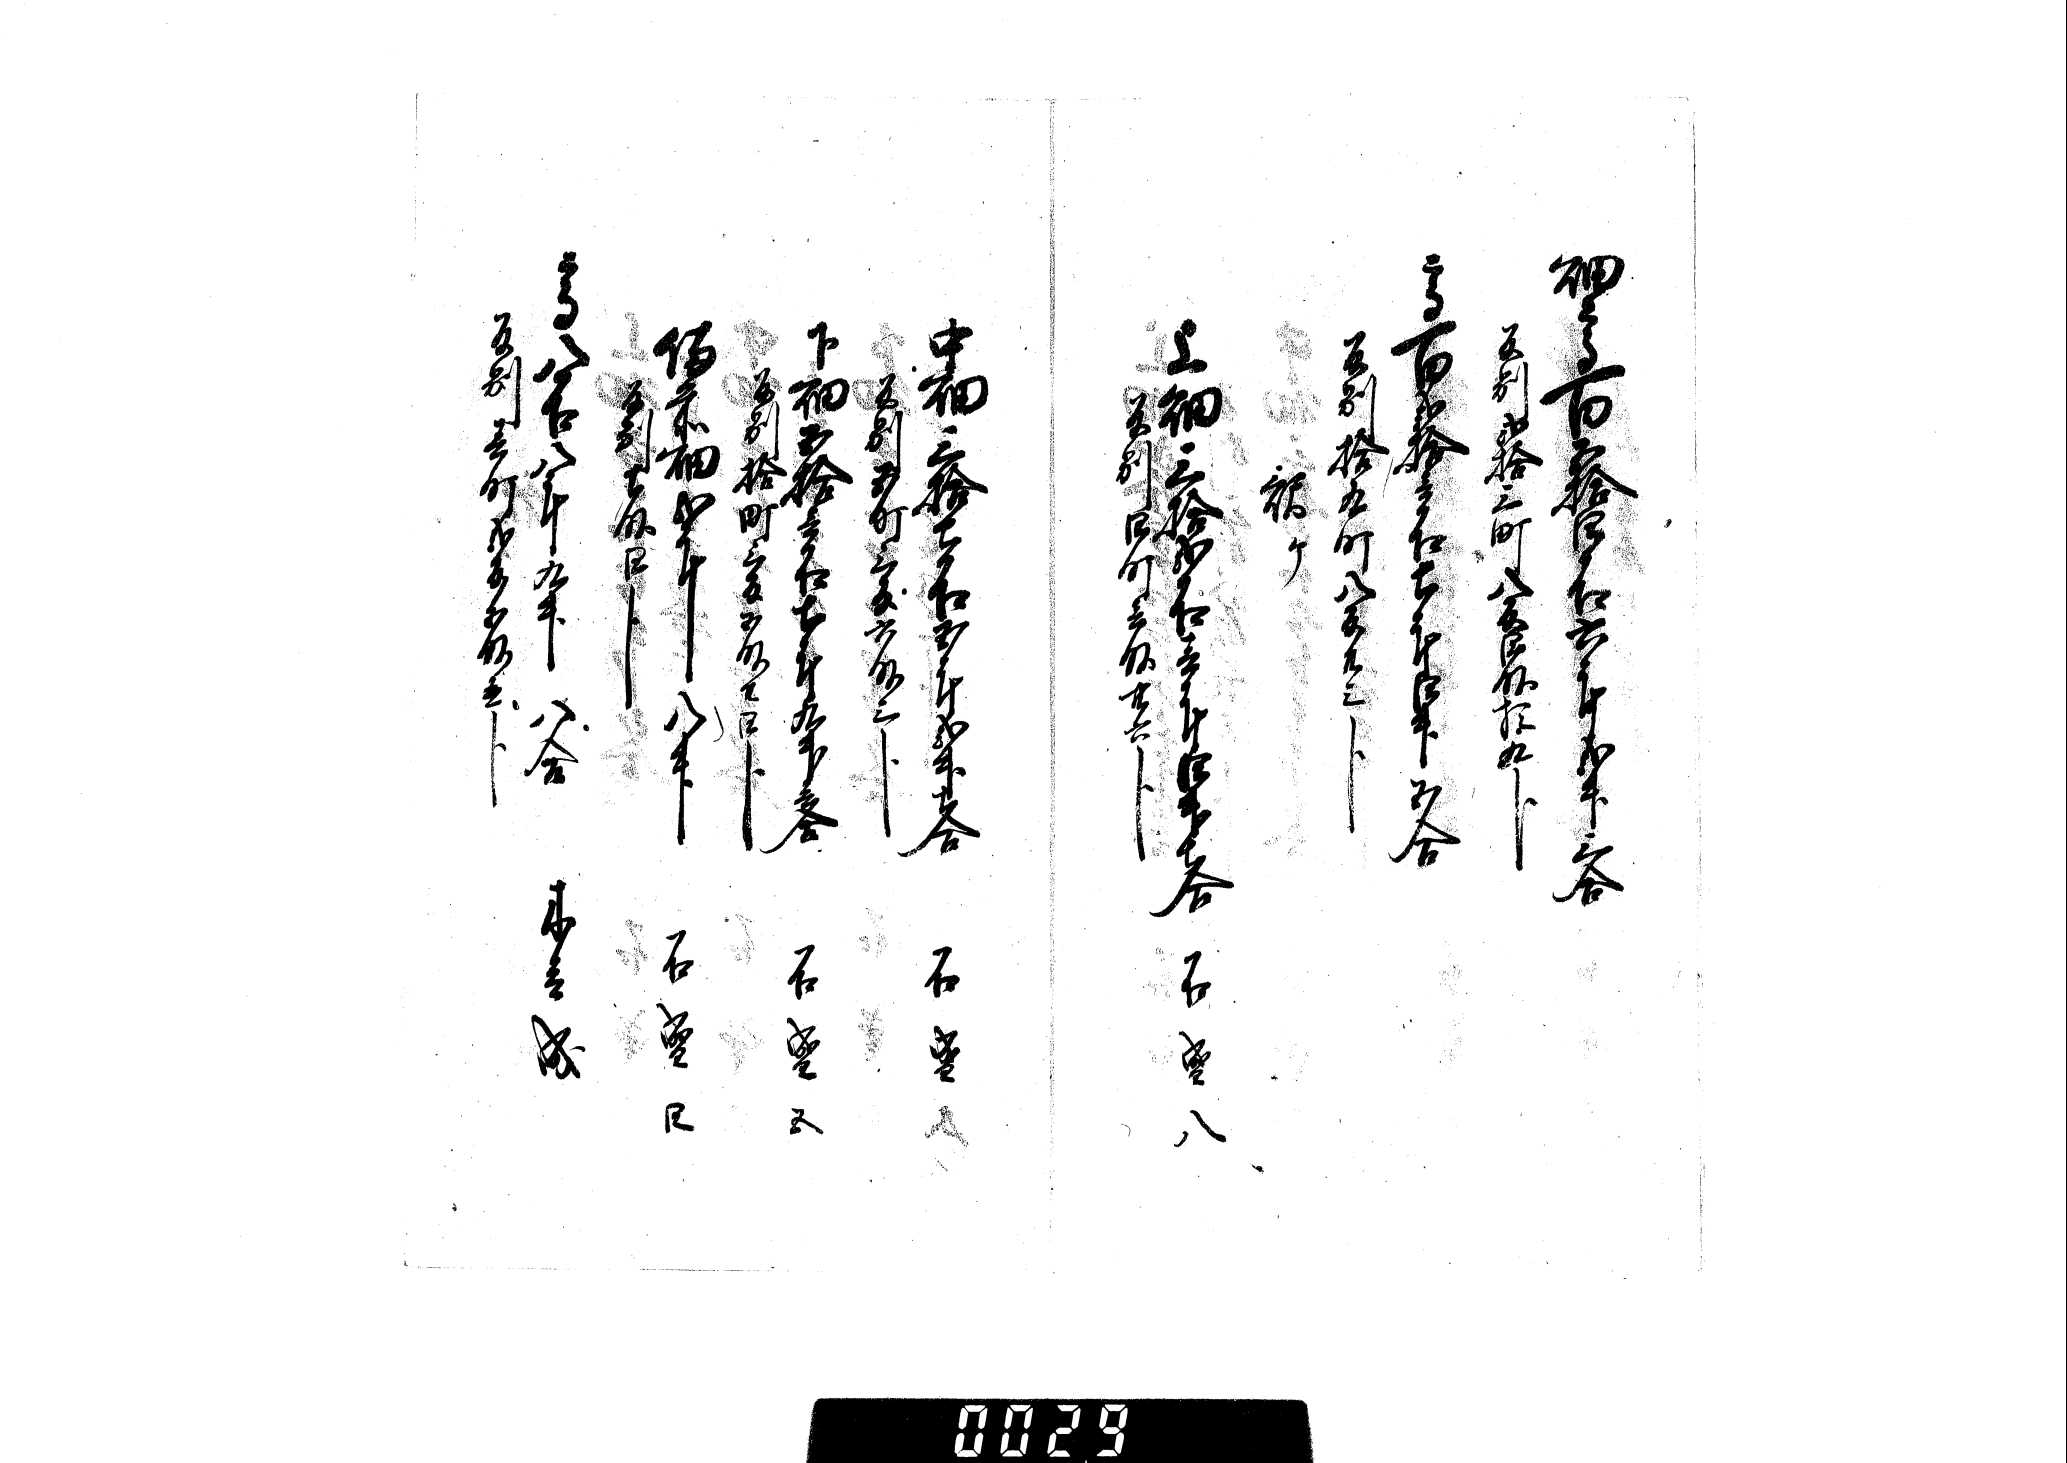 畑高百五拾四石六斗弐升三合
反別弐拾三町八反四畝拾九歩
高百弐拾壱石七斗四升五合
反別拾五町八反廿三歩
訳ケ
上畑三拾弐石壱斗四升七合 石盛八
反別四町壱畝廿六歩
中畑三拾七石五斗弐升七合 石盛
反別五町三反六畝三歩
下畑五拾壱石七斗九升壱合 石盛五
反別拾町三反五畝廿四歩
畑弐斗八升 石盛四
反別七畝四歩
高八石八斗九升八合
反別壱町弐反五畝
0029